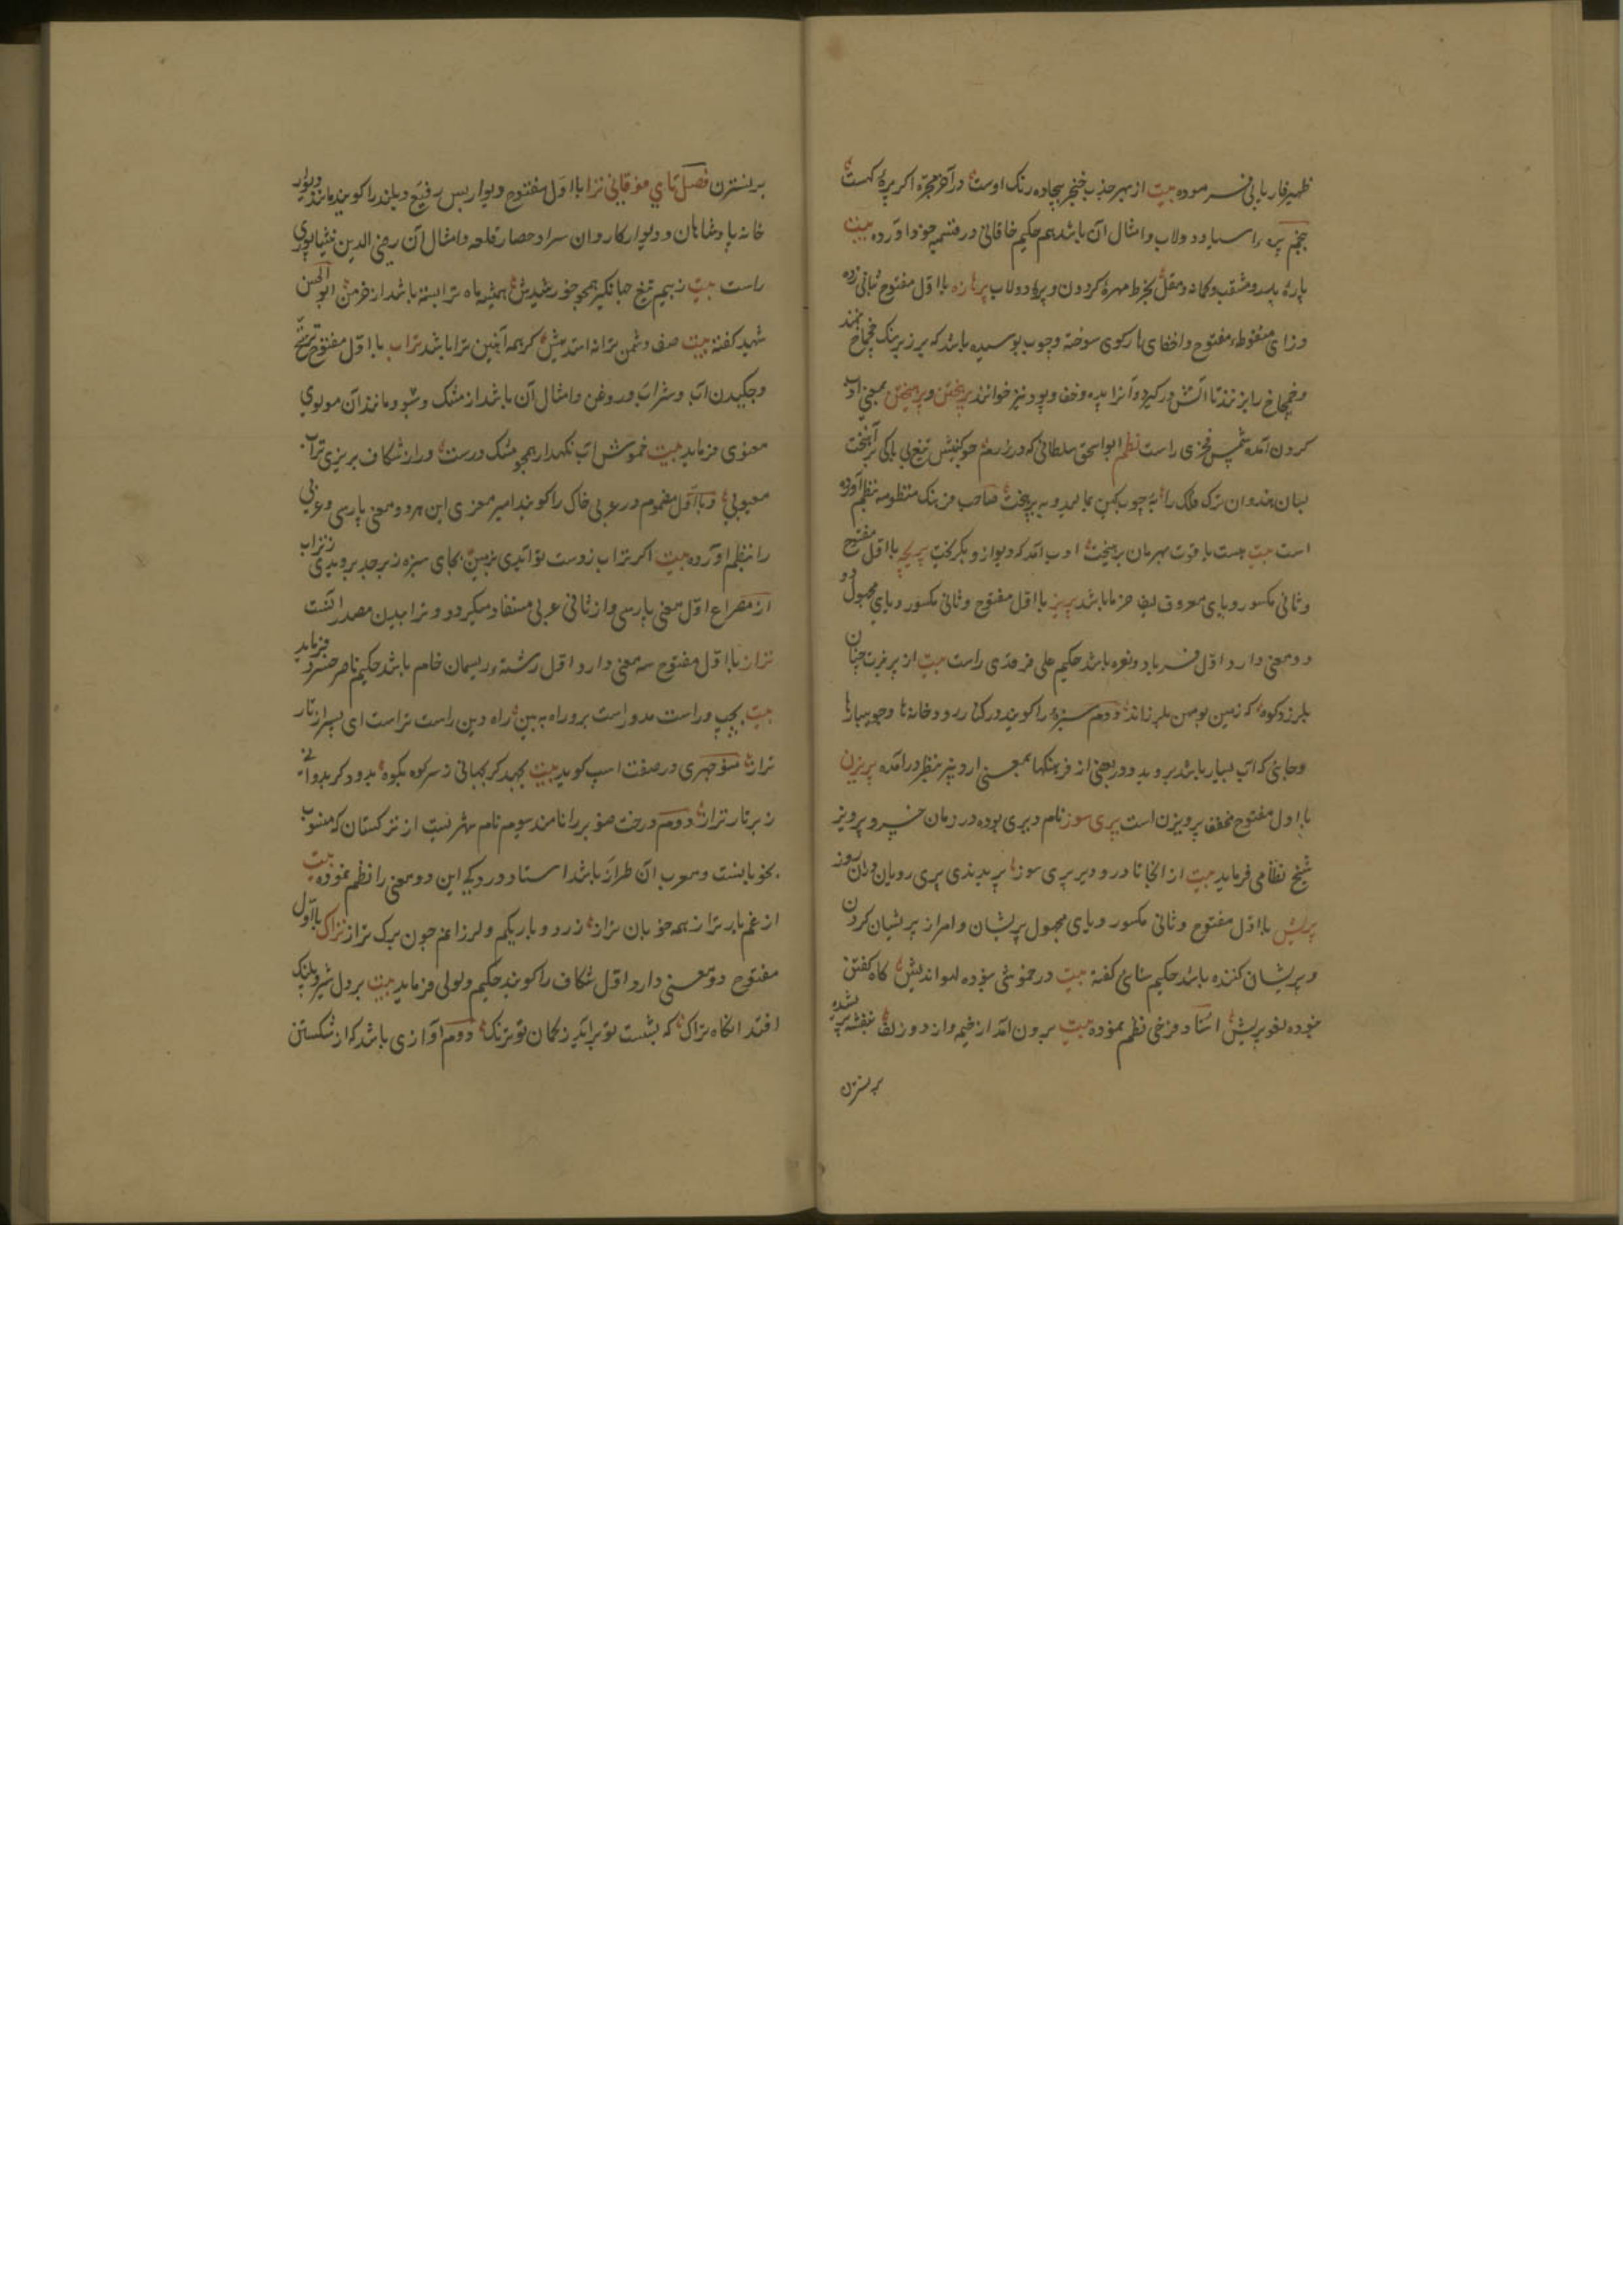 ظهیر فاریابی فرموده بیت از بهر جذب خنجر بیجاده رنک اوست در آخر مجره اکر پرهٔ کهست
پنجم پره آسیا و دولاب و امثال آن باشد هم حکیم خاقانی در قسمیه خود آورده بیت
بخرط مهرهٔ کردون و پرهٔ دولاب پرنازه با اول مفتوح بثانی زده
و زای منقوطه مفتوح و اخفای ها رکوی سوخته و چوب پوسیده باشد که بر زبر سنک چخماخ نهند
و چخماخ را بزنند تا آتش در کیرد و آنرا پده و خف و پود نیز خوانند پریختن و پرهیختن بمعنی ادب
کردن آمده شمس فخری راست نظم ابو اسحق سلطانی که در رزم چو کینش تیغ بی باکی بر آهیخت
بسان هندوان ترک فلک را به چوب کین بمالید و به پریخت صاحب فرهنک منظومه نظم آورده
است بیت هست یاقوت بهرمان پرهیخت ادب آمد که دیوازو بکریخت با اول مفتوح
و ثانی مکسور و یای معروف لیف خرما باشد پریز با اول مفتوح و ثانی مکسور و یای مجهول دو
دو معنی دارد اول فریاد و نعره باشد حکیم علی فرقدی راست بیت از پریزت چنان
بلرزد کوه که زمین بومهن بلرزاند دوم سبزه را کویند در کنار رودخانه‌ها و جویبارها
و جایی که آب بسیار باشد بروید و در بعضی از فرهنکها بمعنی ارد بیز بنظر درآمده پریزن
با اول مفتوح مخفف پرویزن است پری سوز نام دیری بوده در زمان خسرو پرویز
شیخ نظامی فرماید بیت از انجا تا در دیر پری سوز پریدندی پری رویان در ان روز
پریش با اول مفتوح و ثانی مکسور و یای مجهول پریشان و امر از پریشان کردن
و پریشان کننده باشد حکیم سنائی کفته بیت در خموشی بوده لهو اندیش کاه کفتن
بوده لغو پریش استاد فرخی نظم نموده بیت برون آمد از خیمه و از دو زلف بنفشه پریشیده
بر نسترن
بر نسترن فصل تای فوقانی ترا با اول مفتوح دیوار بس رفیع و بلند را کویند مانند دیوار
خانه پادشاهان و دیوار کاروان سرا و حصار قلعه و امثال آن رضی الدین نیشاپوری
راست بیت ز بیم تیغ جهانکیر همچو خورشیدش همیشه ماه ترا بسته باشد از خرمن ابوالحسن
شهید کفته بیت صف دشمن ترا نه استد پیش کر همه آهنین ترا باشد تراب با اول مفتوح ترشح
و چکیدن آب و شراب و روغن و امثال آن باشد از مشک و سبو و مانند آن مولوی
معنوی فرماید بیت خموشش آب نکهدار همچو مشک درست ور از شکاف بریزی تراب
معیوبی و با اول مضموم در عربی خاک را کویند امیر معزی این هر دو معنی پارسی و عربی
را بنظم آورده بیت اکر تراب ز دست تو آیدی بزمین بجای سبزه زبرجد برویدی ز تراب
از مصراع اول معنی پارسی و از ثانی عربی مستفاد میکردد و ترابیدن مصدر آنست
تراز با اول مفتوح سه معنی دارد اول رشته و ریسمان خام باشد حکیم ناصر خسرو فرماید
بیت بچپ و راست مدو راست برو راه ببین راه دین راست تراست ای پسر از تار
تراز منوچهری در صفت اسپ کوید بیت بجهد کر بجهانی ز سر کوه بکوه بدود کر بدوانی
ز بر تار تراز دوم درخت صنوبر را نامند سوم نام شهریست از ترکستان که منسوب
بخوبانست و معرب آن طراز باشد استاد رودکی این دو معنی را نظم نموده بیت
از غم یار تراز همه خوبان تراز زرد و باریکم و لرزانم چون برک تراز تراک با اول
مفتوح دو معنی دارد اول شکاف را کویند حکیم فرماید بیت بر دل شیر و پلنک
افتد انکاه تراک که بشست تو برآید ز کمان تو ترنک دوم آوازی باشد که از شکستن